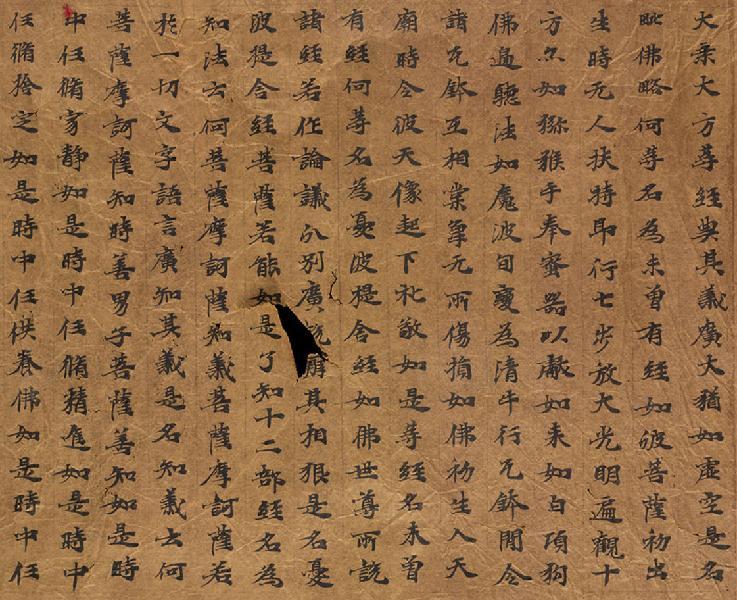 大乘大方等經典其義廣大猶如虛空是名
毗佛略何等名為未曾有經如彼菩薩初出
生時无人扶持即行七步放大光明遍觀十
方亦如猕猴手奉蜜器以獻如来如白項狗
佛邊聽法如魔波旬變為清牛行瓦鉢間令
諸瓦鉢互相棠㧙无所傷損如佛初生入天
廟時令彼天像起下礼敬如是等經名未曾
有經何等名為憂波提舍經如佛世尊所說
諸經若作論議分別廣說辯其相狠是名憂
波提舍經菩薩若能如是了知十二部經名為
知法云何菩薩摩訶薩知義菩薩摩訶薩若
於一切文字語言廣知其義是名知義云何
菩薩摩訶薩知時善男子菩薩善知如是時
中任脩家静如是時中任脩精進如是時中
任脩捨定如是時中任供養佛如是時中任